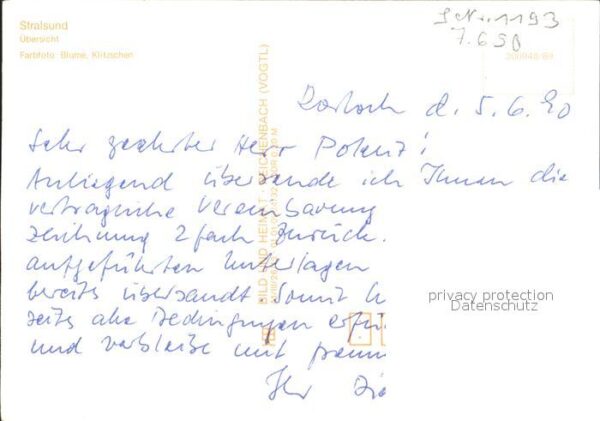 Stralsund
Übersicht
Farbfoto: Blume, Klitzschen
1193
7.6.90
BILD UND HEIMAT REICHENBACH (VOGTL)
Rostock d. 5.6.90
Sehr geehrter Herr Polenz!
Anliegend übersende ich Ihnen die
vertragliche Vereinbarung
zeichnung 2fach zurück.
aufgeführten Unterlagen
bereits übersandt Somit h
seits alle Bedingungen erfü
und verbleibe mit freun
Ihr
privacy protection
Datenschutz